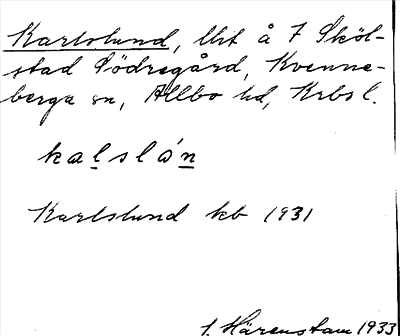 Karlslund, lht å 7 Sköl-
stad Södregård, Kvenne-
berga sn, Allbo hd, Krbs l.
kalslón
Karlslund kb 1931
J. Härenstam 1933